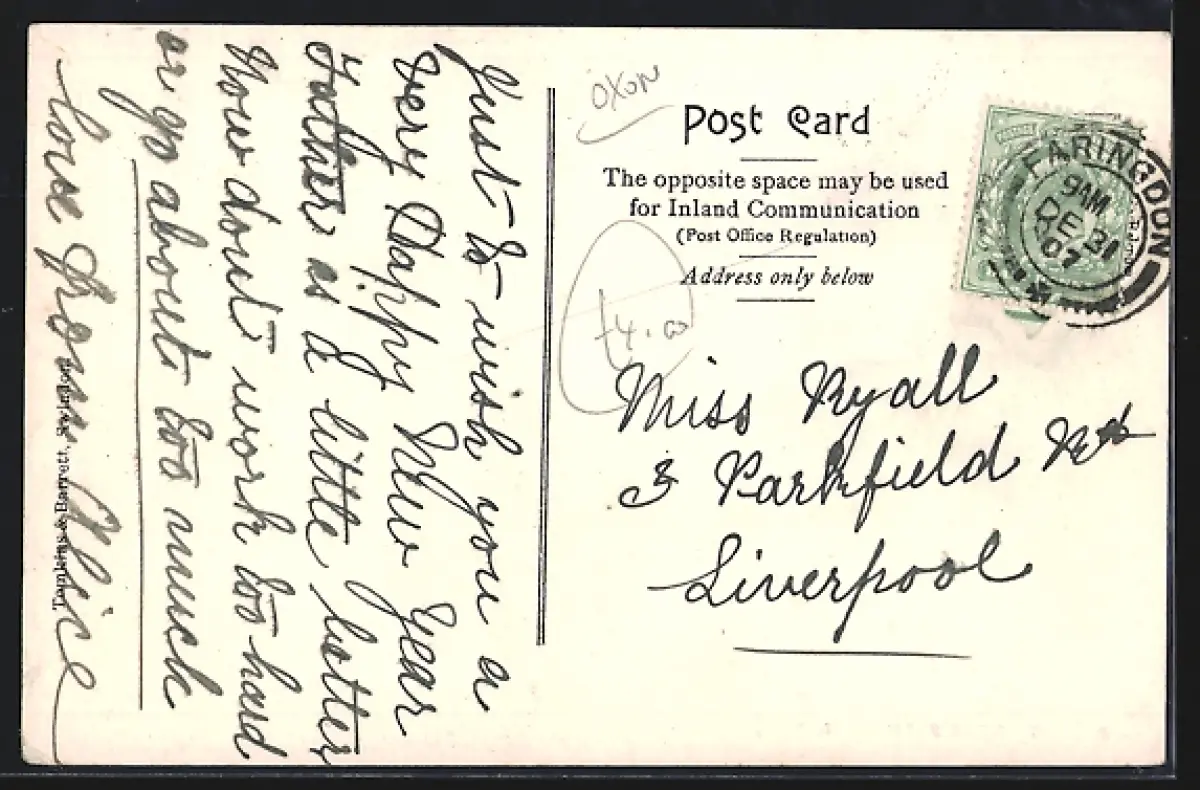 Just to wish you a
very Happy New Year
Father is a little better
Now dont work too hard
or go about too much
love from Alice
Tomkins & Barrett, Swindon
OXON
Post Card
The opposite space may be used
for Inland Communication
(Post Office Regulation)
Address only below
£4.00
FARINGDON
9AM
DE 31
07
Miss Ryall
3 Parkfield Rd
Liverpool